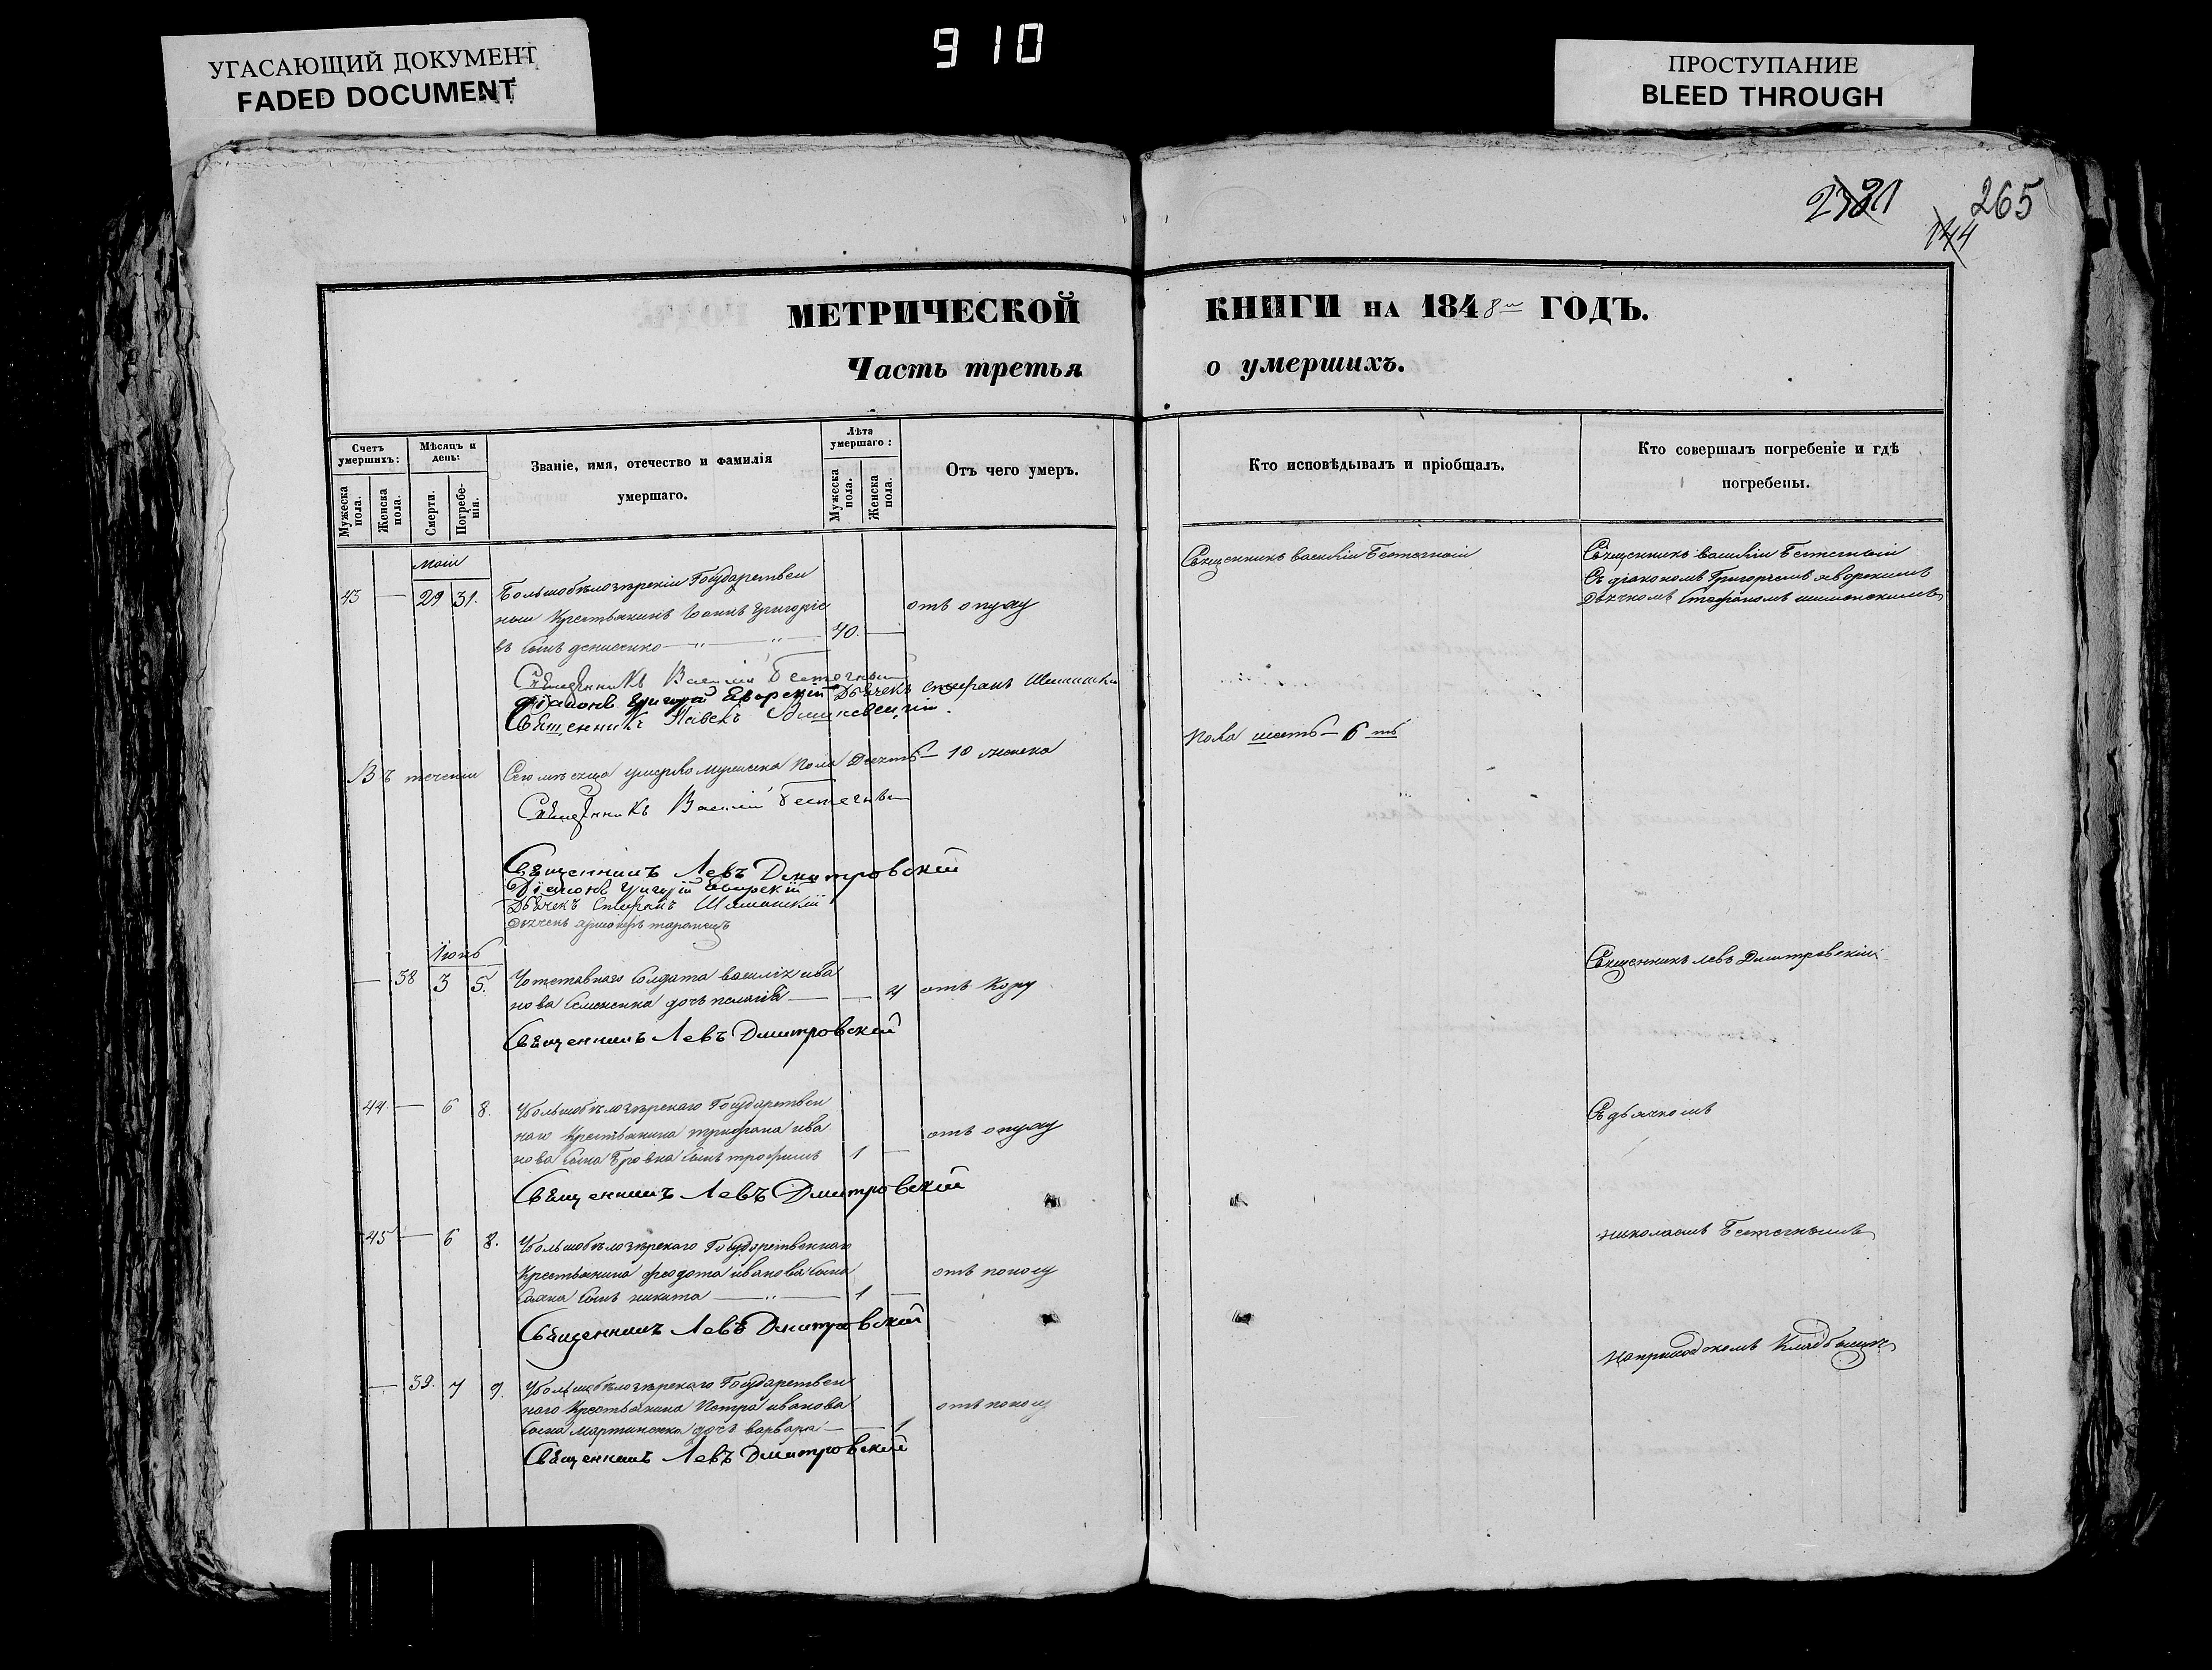 УГАСАЮЩИЙ ДОКУМЕНТ
FADED DOCUMENT
910
ПРОСТУПАНИЕ
BLEED THROUGH
265
144
МЕТРИЧЕСКОЙ КНИГИ НА 1848 ГОДЪ.
Часть третья о умершихъ.
Счетъ умершихъ:
Мужеска пола.
Женска пола.
Мѣсяцъ и день:
Смерти.
Погребенія.
Званіе, имя, отечество и фамилія
умершаго.
Лѣта умершаго:
Мужеска пола.
Женска пола.
Отъ чего умеръ.
Кто исповѣдывалъ и пріобщалъ.
Кто совершалъ погребеніе и гдѣ
погребены.
маіи
43 — 29 31. Большобѣлозѣрскіи Государствен
ныи Крестьянинъ Іоаннъ Григоріе
въ сынъ денисенко — " — " — 70. — отъ опуху
Священникъ Василіи Бестечныи
Священникъ василіи Бестечныи
Съ діакономъ Григоріемъ яворскимъ
Дьячкомъ Стефаномъ шиманскимъ
Священникъ Василій Бестечный
Діаконъ Григорій Яворскій Дьячекъ Стефанъ
Священникъ Павелъ
Въ теченіи Сего мѣсяца умерло мужеска пола Десять — 10 женска
Пола шесть — 6 ть
Священникъ Василій Бестечный
Священникъ Левъ Дмитровскій
Діаконъ Григорій Яворскій
Дьячекъ Стефанъ Шиманскій
Дьячекъ
Іюнь
— 38 3 5. Отставнаго Солдата василія ива
нова Семененка дочь пелагія — — 4 отъ Кору
Священникъ левъ Дмитровскіи
Священникъ Левъ Дмитровскій
44 — 6 8. Большобѣлозѣрскаго Государствен
наго Крестьянина трифона ива
нова Сына Бровка Сынъ трофимъ 1 — отъ опуху
Съ дьячкомъ
Священникъ Левъ Дмитровскій
45 — 6 8. Большобѣлозѣрскаго Государственнаго
Крестьянина федота иванова Сына
Сынъ никита — " — 1 — отъ поносу
николаемъ Бестечнымъ
Священникъ Левъ Дмитровскій
— 39. 7 9. Большобѣлозѣрскаго Государствен
наго Крестьянина Петра иванова
Сына Мартиненка дочь варвара — — 1 отъ поносу
На приходскомъ Кладбищѣ
Священникъ Левъ Дмитровскій